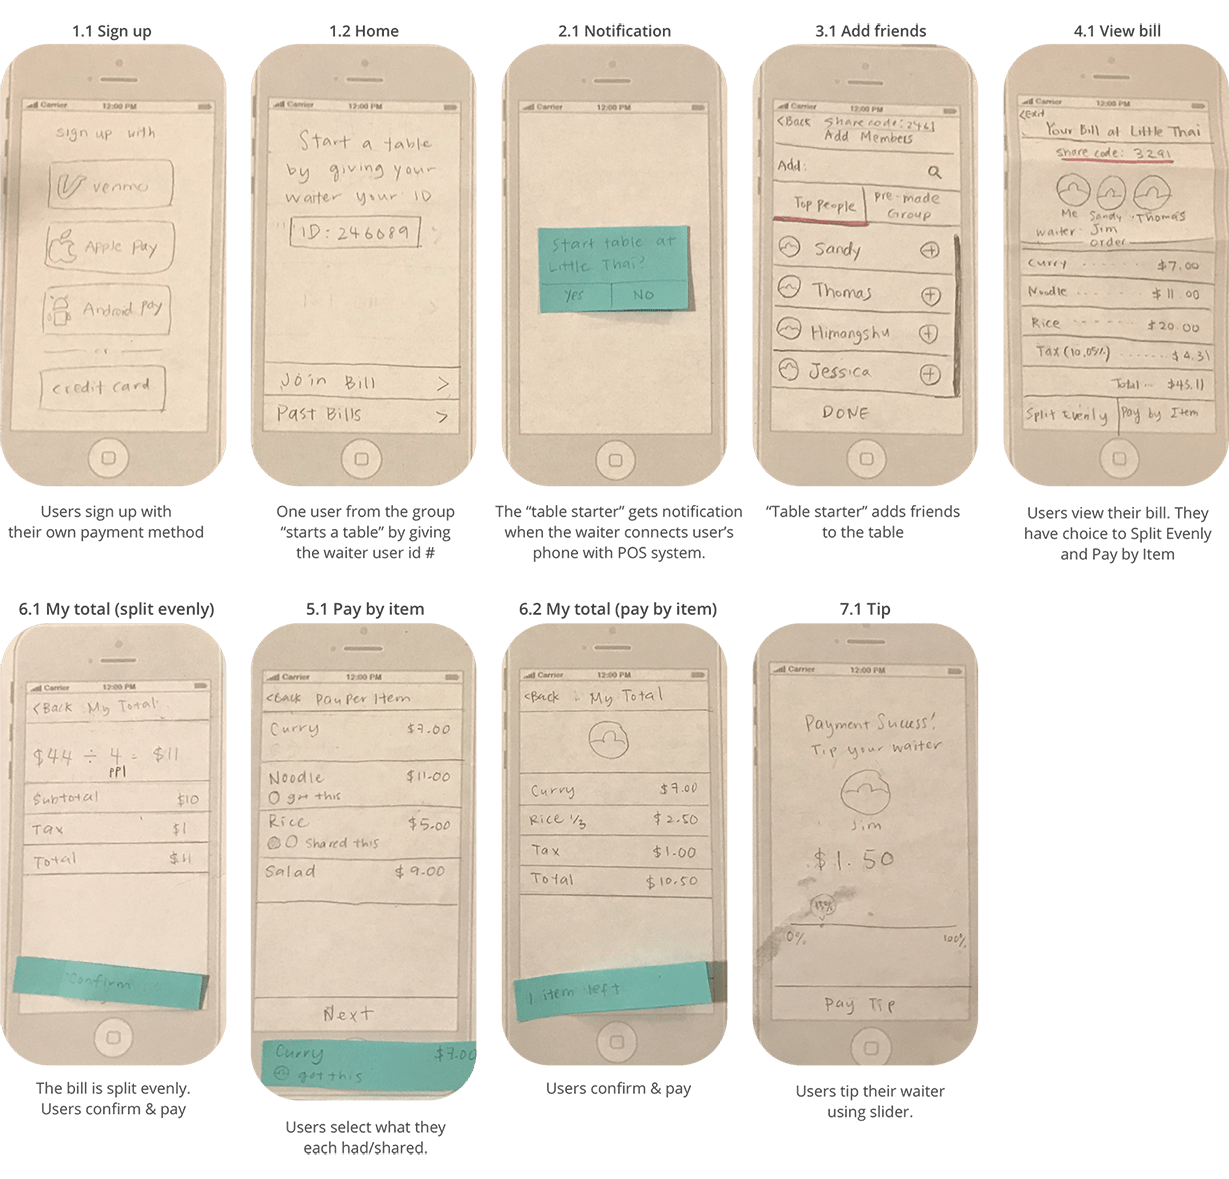 1.1 Sign up
Carrier 12:00 PM
Sign up with
venmo
Apple Pay
Android Pay
or
credit card
Users sign up with
their own payment method
1.2 Home
Carrier 12:00 PM
Start a table
by giving your
waiter your ID
ID: 246689
Join Bill >
Past Bills >
One user from the group
“starts a table” by giving
the waiter user id #
2.1 Notification
Carrier 12:00 PM
Start table at
Little Thai?
Yes NO
The “table starter” gets notification
when the waiter connects user’s
phone with POS system.
3.1 Add friends
Carrier 12:00 PM
<Back Share code: 2461
Add Members
Add:
Top People
Pre-made
Group
Sandy
Thomas
Himangshu
Jessica
DONE
“Table starter” adds friends
to the table
4.1 View bill
Carrier 12:00 PM
<Exit
Your Bill at Little Thai
Share code: 3291
Me Sandy Thomas
waiter - Jim
order
Curry $7.00
Noodle $11.00
Rice $20.00
Tax (10.05%) $4.31
Total $45.11
Split Evenly Pay by Item
Users view their bill. They
have choice to Split Evenly
and Pay by Item
6.1 My total (split evenly)
Carrier 12:00 PM
<Back My Total
$44 ÷ 4 = $11
PPl
Subtotal $10
Tax $1
Total $11
Confirm
The bill is split evenly.
Users confirm & pay
5.1 Pay by item
Carrier 12:00 PM
<Back Pay Per Item
Curry $7.00
Noodle $11.00
got this
Rice $5.00
Shared this
Salad $9.00
Next
Curry $7.00
got this
Users select what they
each had/shared.
6.2 My total (pay by item)
Carrier 12:00 PM
<Back My Total
Curry $7.00
Rice 1/3 $2.50
Tax $1.00
Total $10.50
1 item left
Users confirm & pay
7.1 Tip
Carrier 12:00 PM
Payment Success!
Tip your waiter
Jim
$1.50
15%
0% 100%
Pay Tip
Users tip their waiter
using slider.